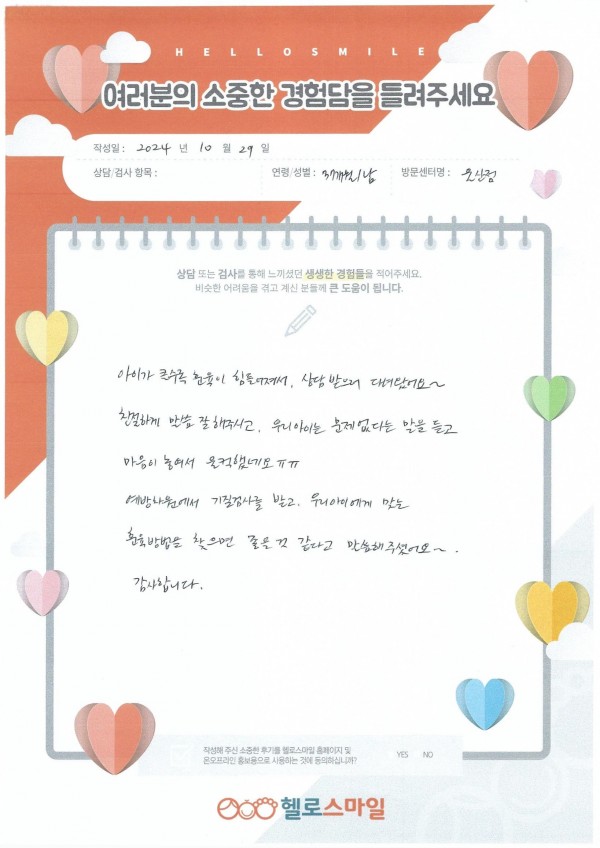 HELLOSMILE
여러분의 소중한 경험담을 들려주세요
작성일 : 2024 년 10 월 29 일
상담/검사 항목 : 연령/성별 : 37개월/남 방문센터명 : 오산점
상담 또는 검사를 통해 느끼셨던 생생한 경험들을 적어주세요.
비슷한 어려움을 겪고 계신 분들께 큰 도움이 됩니다.
아이가 클수록 훈육이 힘들어져서, 상담 받으러 다녀왔어요~
친절하게 말씀 잘 해주시고, 우리아이는 문제없다는 말을 듣고
마음이 놓여서 울컥했네요ㅠㅠ
예방차원에서 기질검사를 받고, 우리아이에게 맞는
훈육방법을 찾으면 좋을 것 같다고 말씀해주셨어요~.
감사합니다.
작성해 주신 소중한 후기를 헬로스마일 홈페이지 및
온오프라인 홍보용으로 사용하는 것에 동의하십니까? YES NO
헬로스마일